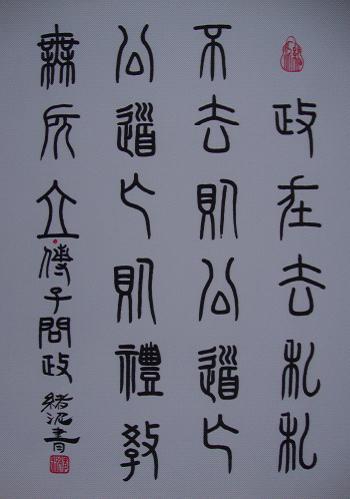 政在去私私
不去則公道亡
公道亡則禮教
無所立傅子問政 緒泥書